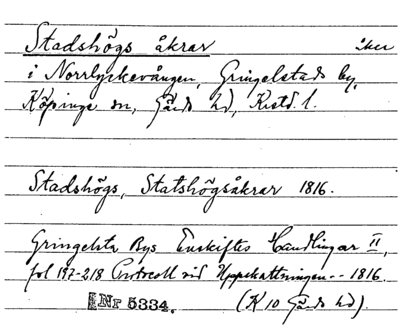 Stadshögs åkrar åker
i Norrlyckevången, Gringelstads by,
Köpinge sn, Gärds hd, Kristd. l.
Stadshögs, Statshögsåkrar 1816.
Gringelsta Bys Enskiftes Handlingar II,
fol 197-218 Protocoll vid Uppskattningen -- 1816.
Nr 5334. (K 10 Gärds hd).